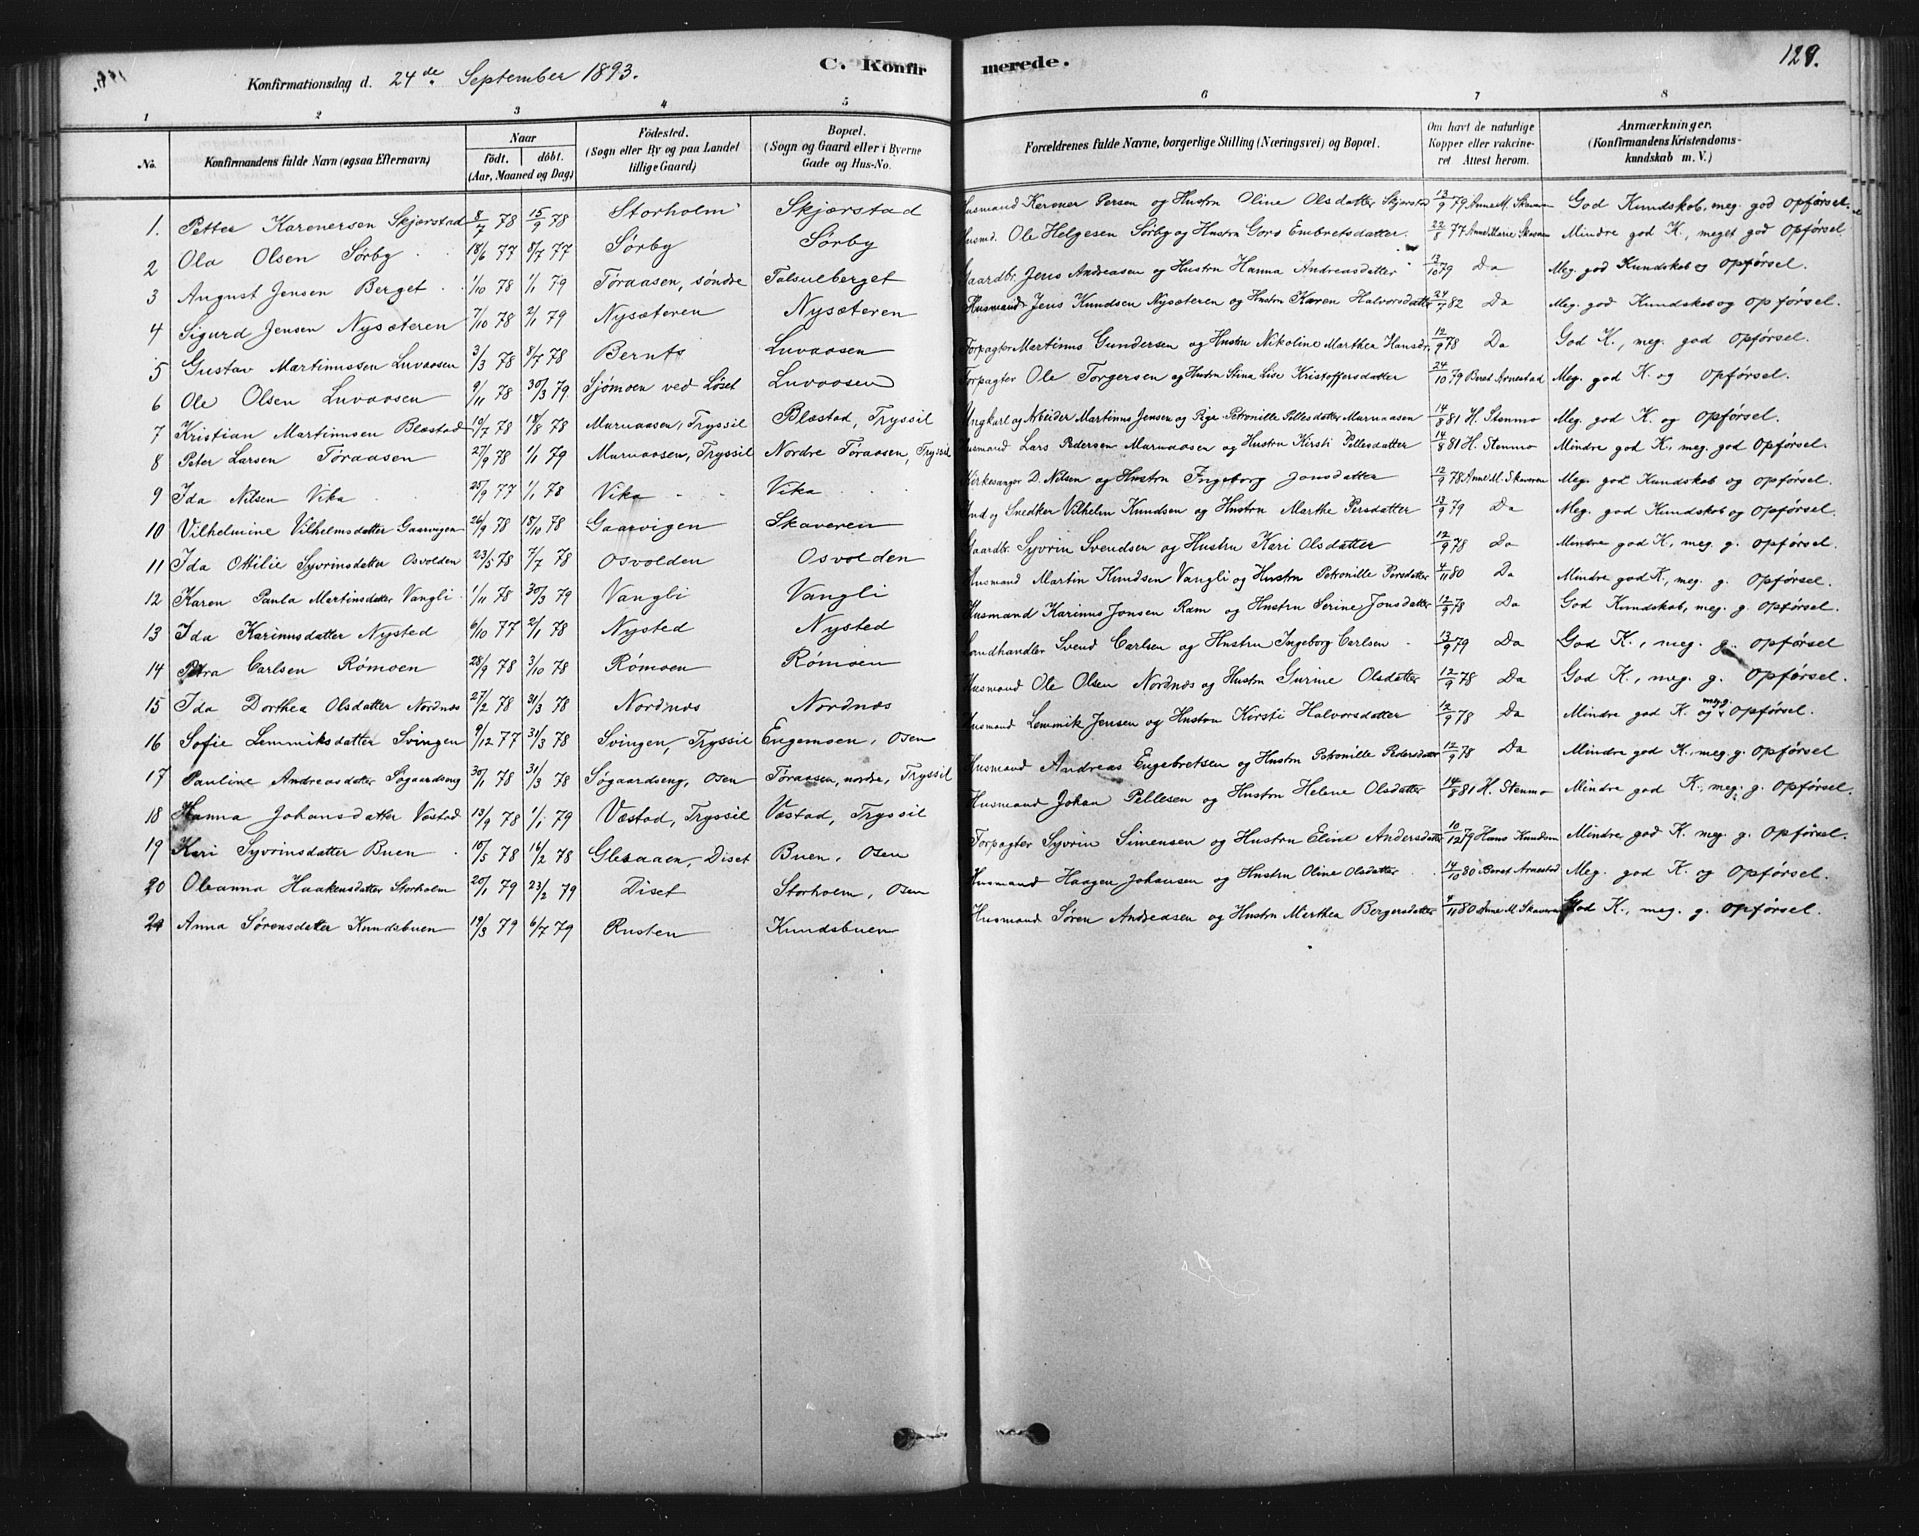 C. Konfirmerede.
129.
Konfirmationsdag d. 24de September 1893.
1 2 3 4 5 6 7 8
No. Konfirmandens fulde Navn (ogsaa Efternavn)
Naar født, døbt. (Aar, Maaned og Dag)
Fødested. (Sogn eller By og paa Landet tillige Gaard)
Bopæl. (Sogn og Gaard eller i Byerne Gade og Hus-No.
Forældrenes fulde Navne, borgerlige Stilling (Næringsvei) og Bopæl.
Om havt de naturlige Kopper eller vakcineret Attest herom.
Anmærkninger. (Konfirmandens Kristendomskundskab m. V.)
1. Petter Karenersen Skjærstad 8/7 78 15/9 78 Storholm Skjærstad Husmand Kerener Persen og Hustru Oline Olsdatter Skjærstad 13/9 79 Anne M. Skaveren God Kundskab, meg. god Opførsel.
2 Ola Olsen Sørby 18/6 77 8/7 77 Sørby Sørby Husmd. Ole Helgesen Sørby og Hustru Goro Embretsdatter. 22/8 77 Anne Marie Skaveren Mindre god K., meget god Opførsel
3 August Jensen Berget 1/10 78 1/1 79 Tøraasen, søndre Talsulberget Gaardbr. Jens Andreasen og Hustru Hanna Andreasdatter 13/10 79 Do Meg. god Kundskab og Opførsel.
4 Sigurd Jensen Nysæteren 7/10 78 2/1 79 Nysæteren Nysæteren Husmand Jens Knudsen Nysæteren og Hustru Karen Halvorsdatter 24/7 82 Do Meg. god Kundskab og Opførsel.
5 Gustav Martinussen Luvaasen 3/3 78 8/7 78 Bernts Luvaasen Forpagter Martinus Gundersen og Hustru Nikoline Marthea Hansdr. 12/9 78 Do God K., meg. god Opførsel.
6 Ole Olsen Luvaasen 9/11 78 30/3 79 Sjømoen ved Løset Luvaasen Forpagter Ole Torgersen og Hustru Stina Lise Kristoffersdatter 24/10 79 Beret Arnestad Meg. god K. og Opførsel.
7 Kristian Martinusen Blæstad 19/7 78 18/8 78 Murnaasen, Tryssil Blæstad, Tryssil Ungkarl og Arbider Martinus Jensen og Pige Petronille Pellesdatter Murnaasen 14/8 81 H. Stenmo Meg. god K. og Opførsel.
8 Peter Larsen Tøraasen 27/9 78 1/1 79 Murnaasen, Tryssil Nordre Tøraasen, Tryssil Husmand Lars Pedersen Murnaasen og Hustru Kirsti Pellesdatter 14/8 81 H. Stenmo Mindre god K., meg. god Opførsel.
9 Ida Nilsen Vika 25/9 77 1/1 78 Vika Vika Kirkesanger D. Nilsen og Hustru Ingeborg Jonsdatter 12/9 78 Anne M. Skaveren Meg. god Kundskab og Opførsel.
10 Vilhelmine Vilhelmsdatter Gaarvigen 26/9 78 18/10 78 Gaarvigen Skaveren Ind og Snedker Vilhelm Knudsen og Hustru Marthe Persdatter 13/9 79 Do Meg. god Kundskab og Opførsel.
11 Ida Ottilie Syvrinsdatter Osvolden 23/5 78 7/7 78 Osvolden Osvolden Gaardbr. Syvrin Svendsen og Hustru Kari Olsdatter 12/9 78 Do Mindre god K., meg. g. Opførsel.
12 Karen Paula Martinsdatter Vangli 1/11 78 30/3 79 Vangli Vangli Husmand Martin Knudsen Vangli og Hustru Petronille Persdatter 4/11 80 Do Mindre god K., meg. g. Opførsel.
13 Ida Karinusdatter Nysted 6/10 77 2/1 78 Nysted Nysted Husmand Karinus Jonsen Ram og Hustru Serine Jonsdatter 12/9 78 Do God Kundskab, meg. g. Opførsel.
14 Petra Carlsen Rømoen 28/9 78 3/10 78 Rømoen Rømoen Landhandler Svend Carlsen og Hustru Ingeborg Carlsen 13/9 79 Do God K., meg. g. Opførsel
15 Ida Dorthea Olsdatter Nordnæs 27/2 78 31/3 78 Nordnæs Nordnæs Husmand Ole Olsen Nordnæs og Hustru Gurine Olsdatter 12/9 78 Do God K., meg. g. Opførsel.
16 Sofie Lemmiksdatter Svingen 9/12 77 31/3 78 Svingen, Tryssil Engemoen, Osen Husmand Lemmik Jensen og Hustru Kirsti Halvorsdatter 12/9 78 Do Mindre god K. og meg. g. Opførsel.
17 Pauline Andreasdatter Søgaardseng 30/1 78 31/3 78 Søgaardseng, Osen Tøraasen, nordre, Tryssil Husmand Andreas Engebretsen og Hustru Petronille Pedersdatter 12/9 78 Do Mindre god K., meg. g. Opførsel
18 Hanna Johansdatter Vestad 13/9 78 1/1 79 Væstad, Tryssil Væstad, Tryssil Husmand Johan Pellesen og Hustru Helene Olsdatter 14/8 81 H. Stenmo Mindre god K., meg. g. Opførsel.
19 Kari Syvrinsdatter Buen 10/5 78 16/2 78 Gleraaen, Diset Buen, Osen Forpagter Syvrin Simensen og Hustru Eline Andersdatter 10/12 79 Hans Knudsen Mindre god K. meg. g. Opførsel.
20 Oleanna Haakensdatter Storholm 20/1 79 23/2 79 Diset Storholm, Osen Husmand Haagen Johansen og Hustru Oline Olsdatter 14/10 80 Beret Arnestad Meg. god K. og Opførsel.
21 Anna Sørensdatter Knudsbuen 19/3 79 6/7 79 Rusten Knudsbuen Husmand Søren Andreasen og Hustru Marthea Bergersdatter 4/11 80 Anne M. Skaveren God K., meg. g. Opførsel.